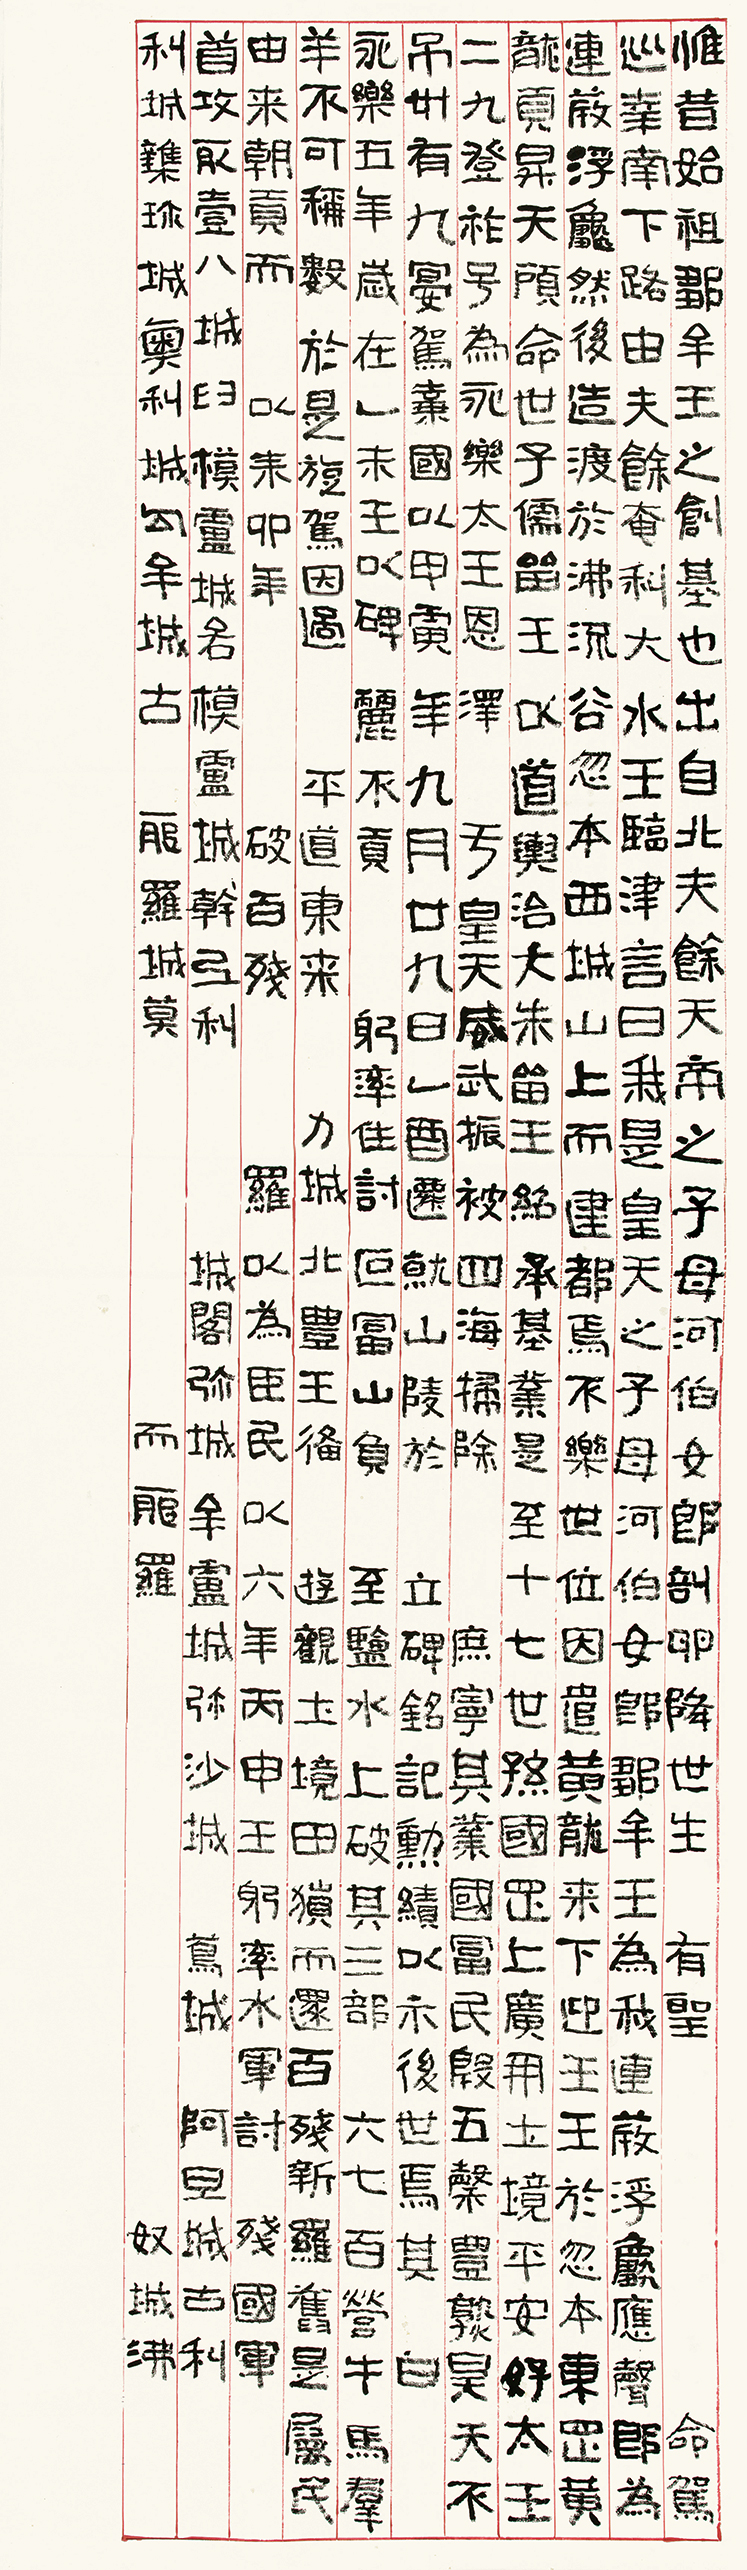 惟昔始祖鄒牟王之創基也出自北夫餘天帝之子母河伯女郎剖卵降世生 有聖 命駕
巡幸南下路由夫餘奄利大水王臨津言曰我是皇天之子母河伯女郎鄒牟王為我連葭浮龜應聲即為
連葭浮龜然後造渡於沸流谷忽本西城山上而建都焉不樂世位因遣黃龍来下迎王王於忽本東罡黃
龍頁昇天顧命世子儒留王以道輿治大朱留王紹承基業是至十七世孫國罡上廣開土境平安好太王
二九登祚号為永樂太王恩澤 于皇天威武振被四海掃除 庶寧其業國富民殷五穀豐熟昊天不
弔卅有九宴駕棄國以甲寅年九月廿九日乙酉遷就山陵於 立碑銘記勳績以示後世焉其 曰
永樂五年歲在乙未王以碑麗不貢 躬率住討叵富山負 至鹽水上破其三部 六七百營牛馬羣
羊不可稱數於是旋駕因過 平道東来 力城北豐王備 遊觀土境田獵而還百殘新羅舊是屬民
由来朝貢而 以耒卯年 破百殘 羅以為臣民以六年丙申王躬率水軍討 殘國軍
首攻取壹八城臼模盧城各模盧城幹弖利 城閣弥城 牟盧城弥沙城 蔦城 阿旦城古利
利城雜珍城奧利城勾牟城古 那羅城莫 而那羅 奴城沸